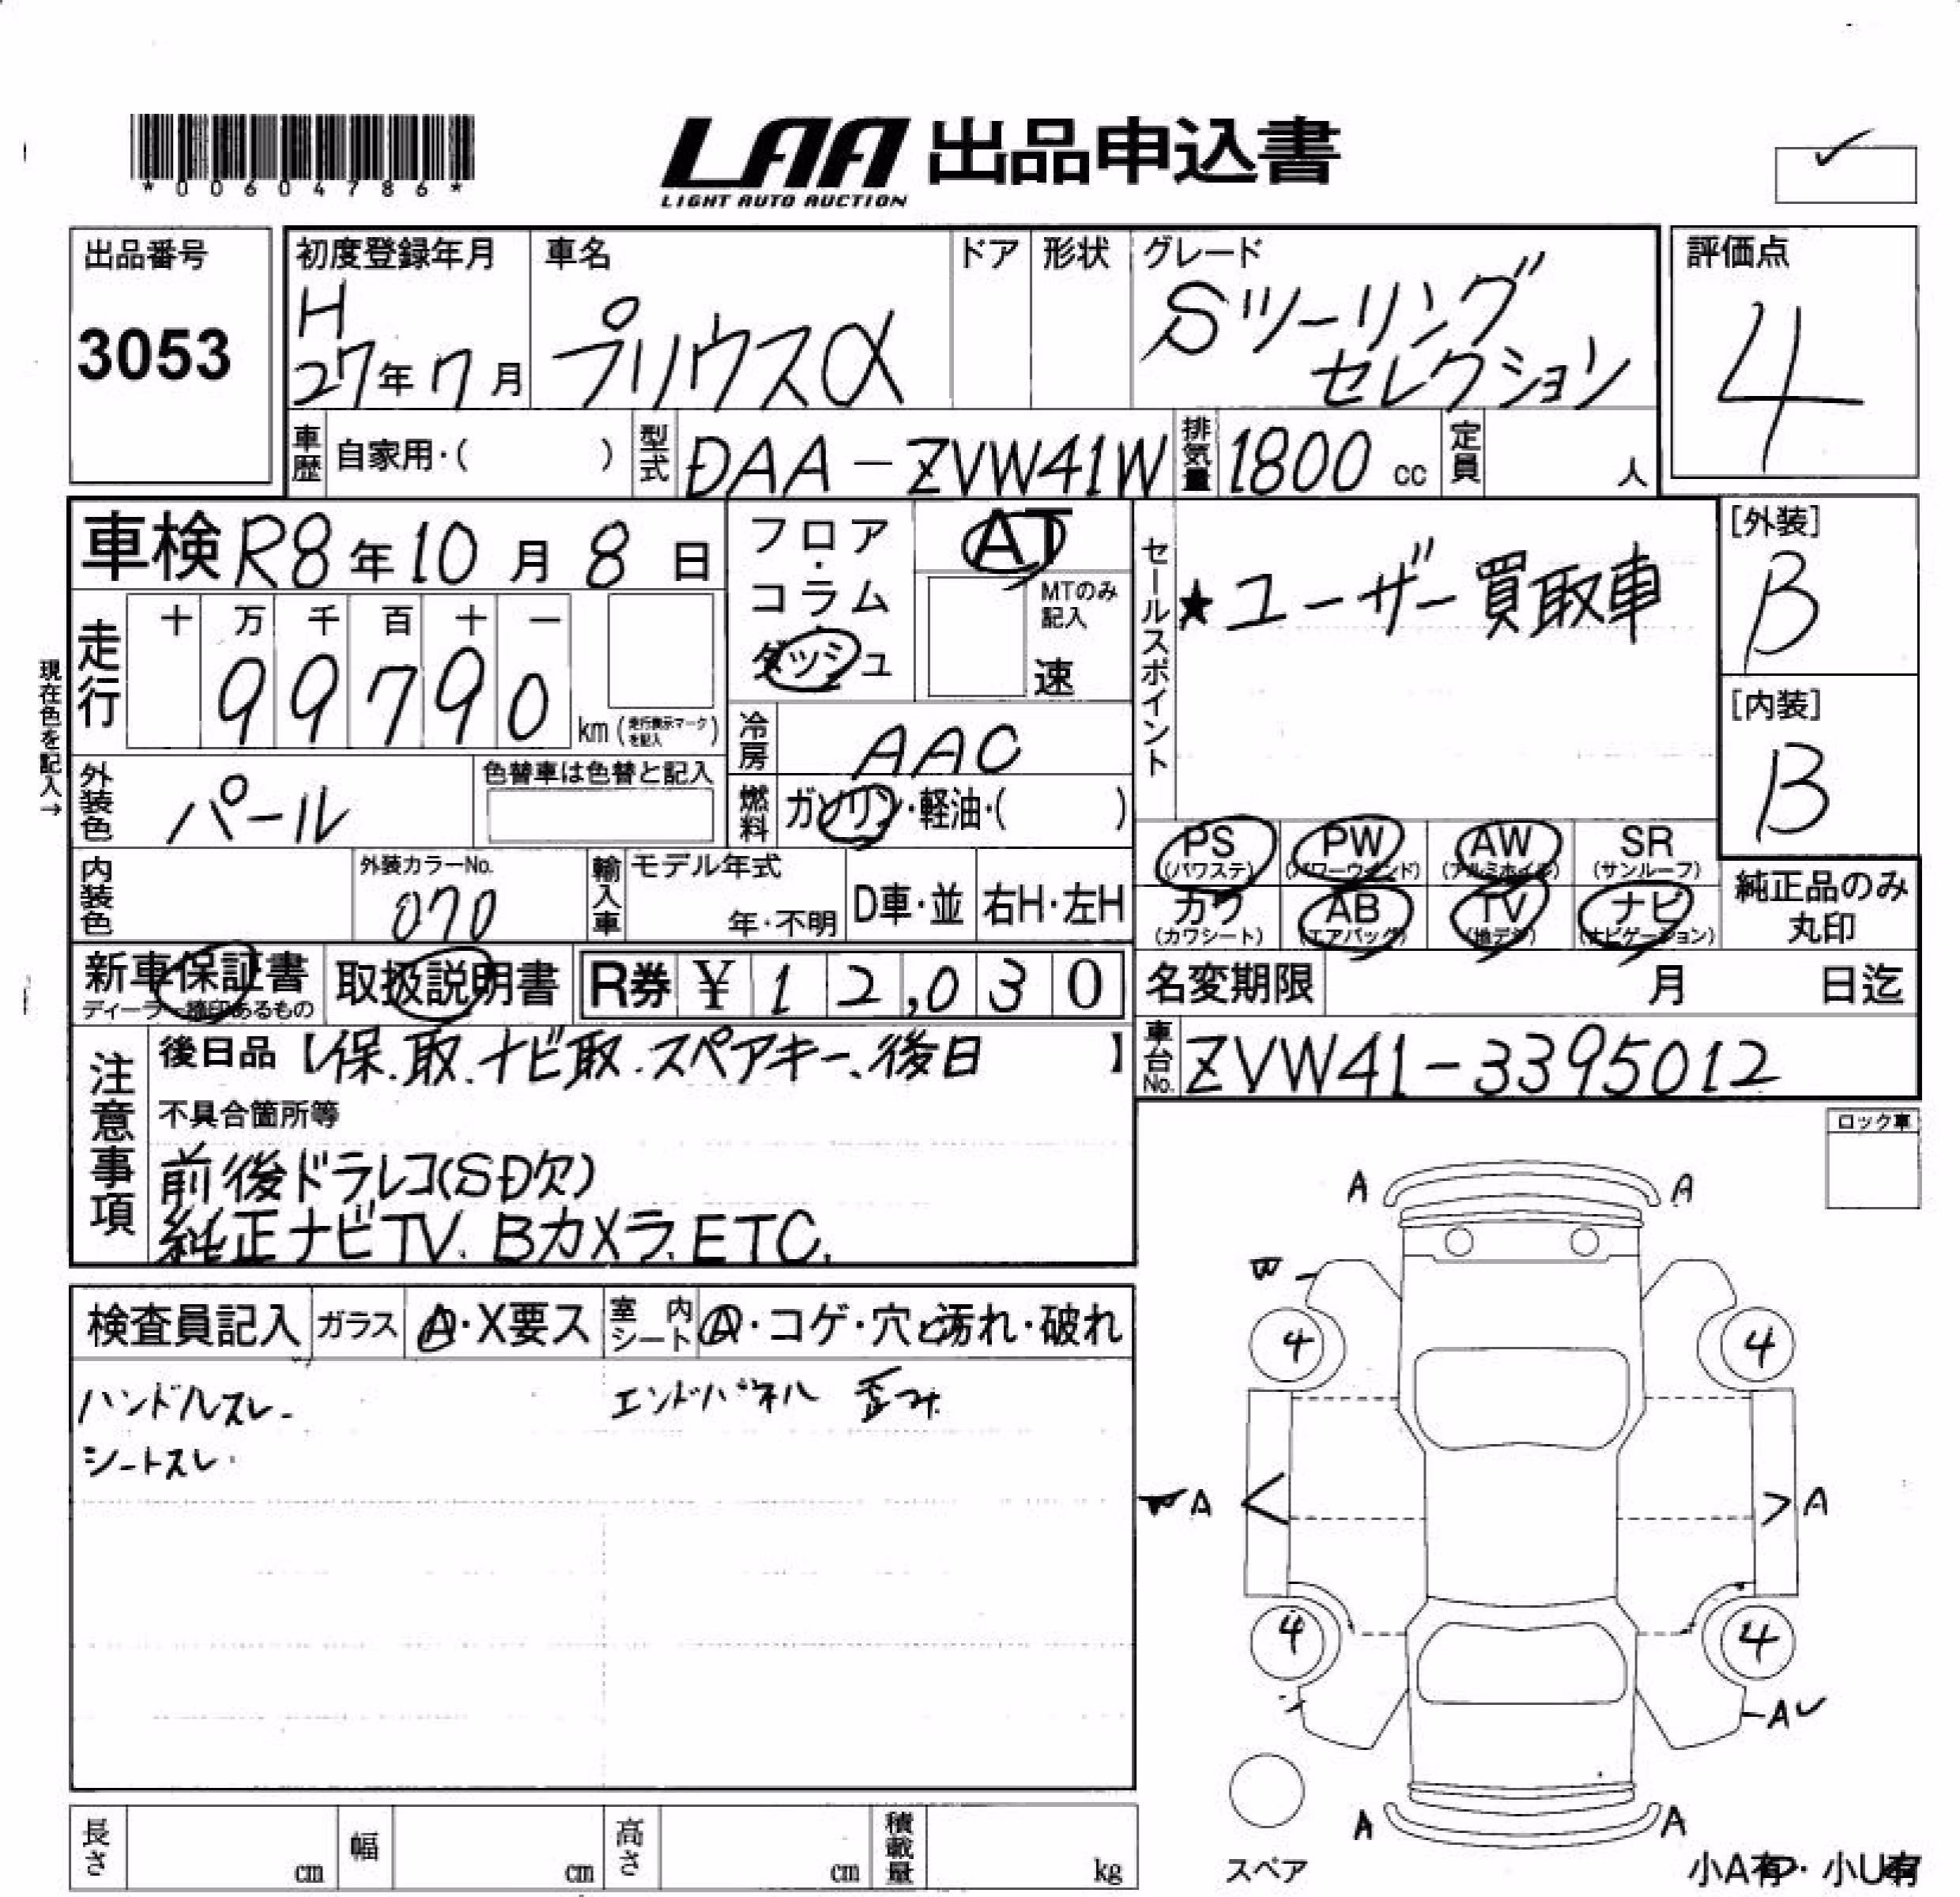 *00604786*
LAA 出品申込書
LIGHT AUTO AUCTION
出品番号
3053
初度登録年月
H
27年7月
車名
プリウスα
ドア
形状
グレード
Sツーリング
セレクション
評価点
4
車歴 自家用・( )
型式 DAA-ZVW41W
排気量 1800 cc
定員 人
車検 R8年10月8日
現在色を記入→
走行
十 万 千 百 十 一
99790
km (走行表示マークを記入)
フロア・コラム・ダッシュ
AT
MTのみ記入
速
冷房 AAC
燃料 ガソリン・軽油・( )
外装色 パール
色替車は色替と記入
内装色
外装カラーNo.
070
輸入車
モデル年式
年・不明
D車・並
右H・左H
セールスポイント
★ユーザー買取車
[外装]
B
[内装]
B
PS (パワステ)
PW (パワーウインド)
AW (アルミホイル)
SR (サンルーフ)
カワ (カワシート)
AB (エアバッグ)
TV (地デジ)
ナビ (ナビゲーション)
純正品のみ
丸印
新車保証書
ディーラー捺印あるもの
取扱説明書
R券 ¥12,030
名変期限 月 日迄
車台No. ZVW41-3395012
注意事項
後日品【保.取.ナビ取.スペアキー、後日】
不具合箇所等
前後ドラレコ(SD欠)
純正ナビTV.Bカメラ.ETC.
検査員記入
ガラス A・X要ス
室内シート A・コゲ・穴・汚れ・破れ
ハンドルスレ
シートスレ
エンドパネル 歪み
ロック車
A A
4 4
A A
4 4
A
A A
スペア
小A有・小U有
長さ cm
幅 cm
高さ cm
積載量 kg